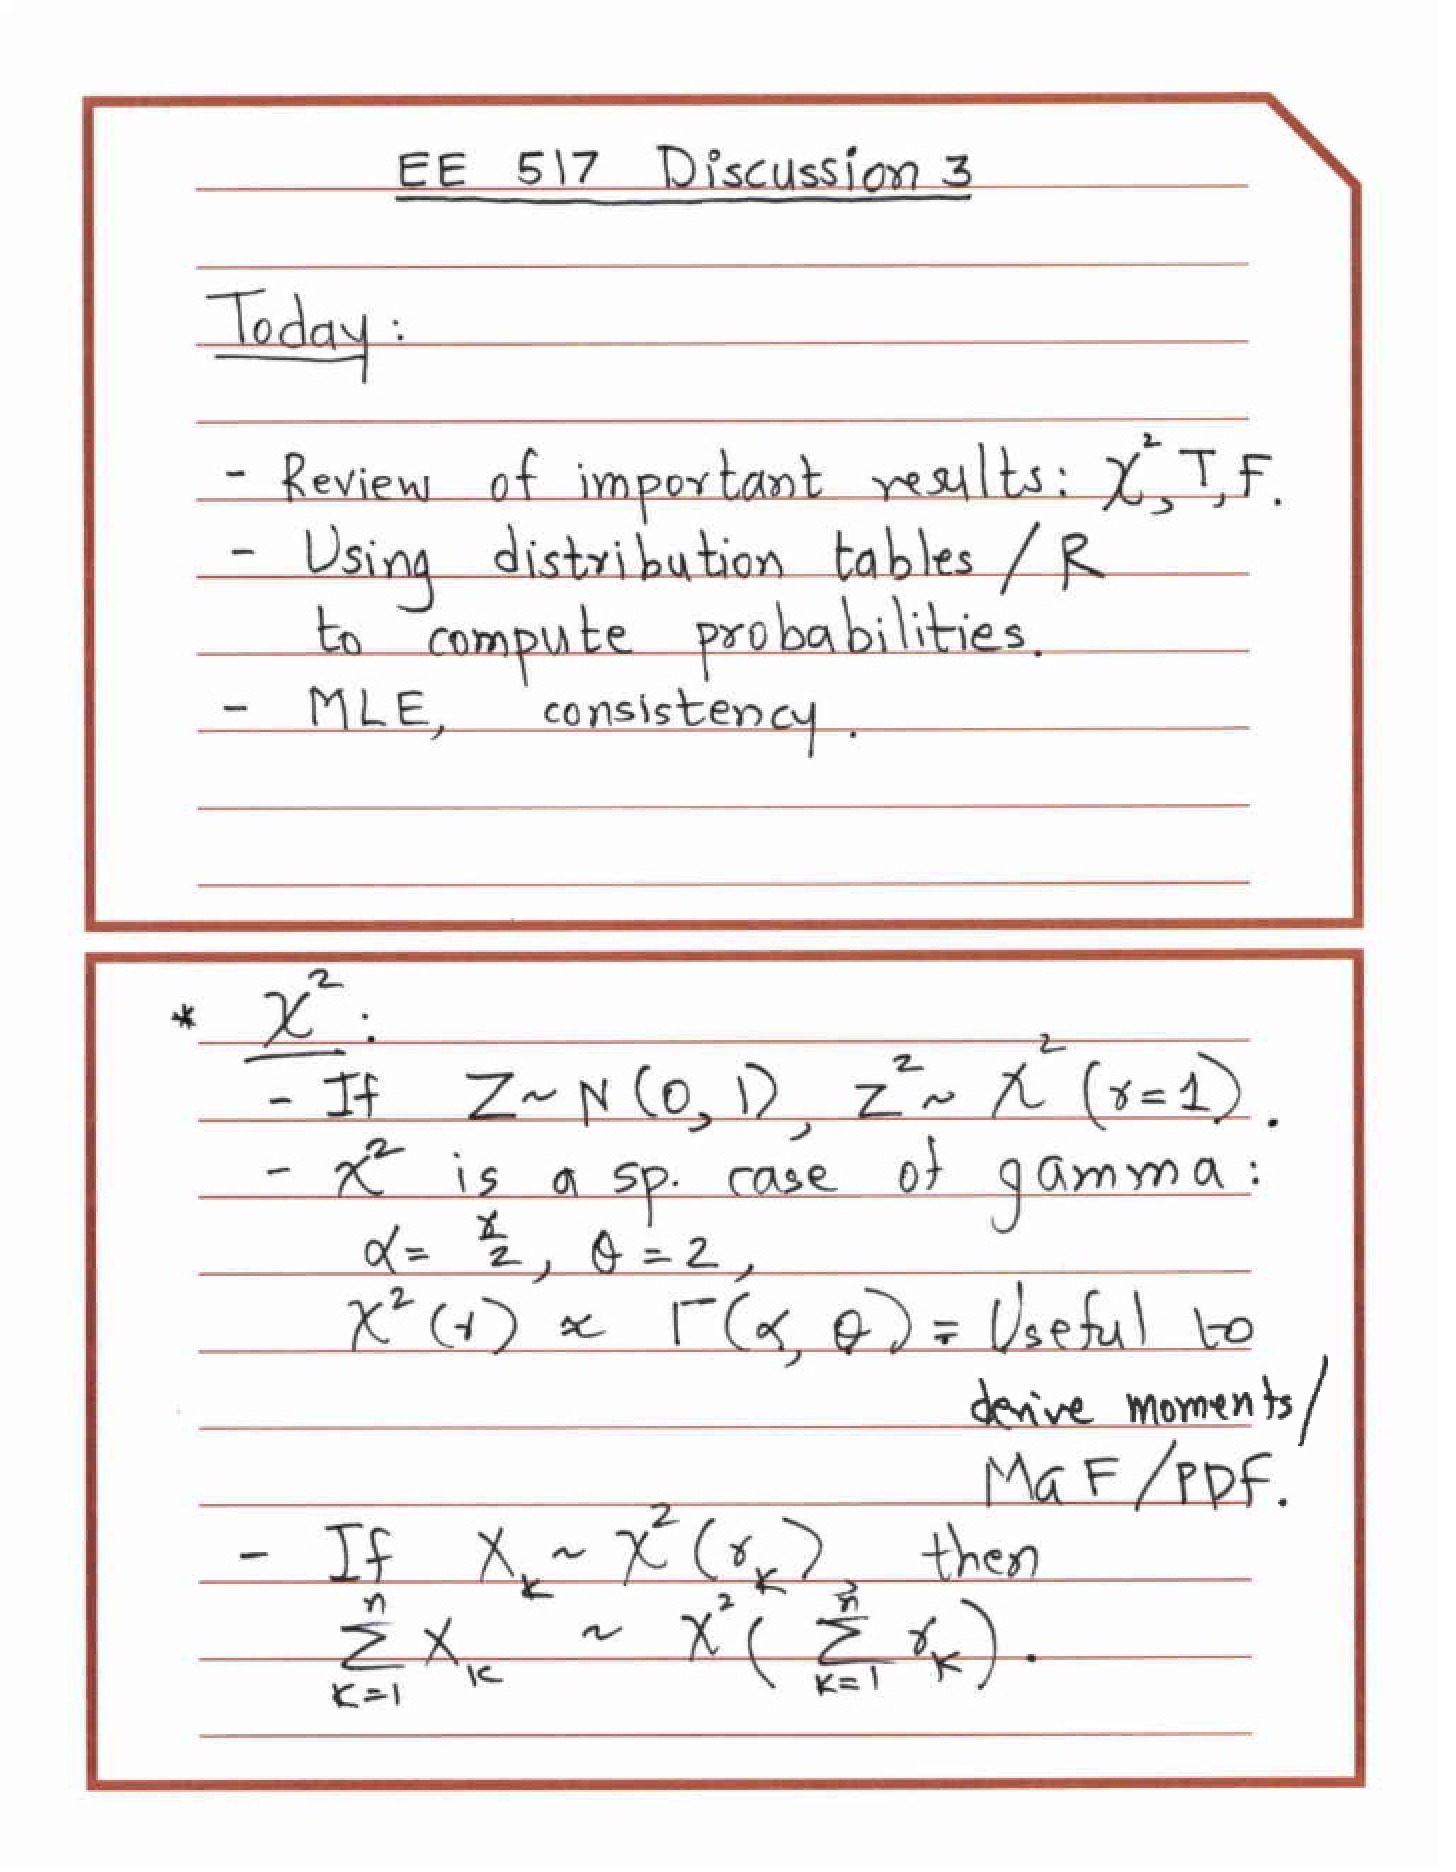 EE 517 Discussion 3
Today:
- Review of important results: χ², T, F.
- Using distribution tables / R
to compute probabilities.
- MLE, consistency.
* χ²:
- If Z ~ N(0, 1), Z² ~ χ² (r=1).
- χ² is a sp. case of gamma:
α = r/2, θ = 2,
χ²(r) ∝ Γ(α, θ) = Useful to
derive moments/
MGF/PDF.
- If X_k ~ χ²(r_k), then
∑_{k=1}^{n} X_k ~ χ²(∑_{k=1}^{n} r_k).